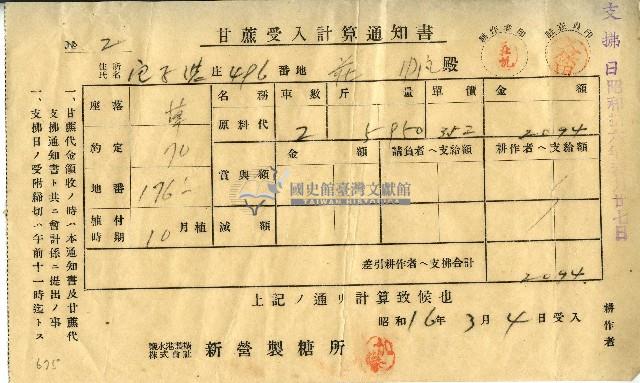 甘蔗受入計算通知書
№ 2
住所
氏名
庄 496 番地 莊 殿
耕作者印
駐在員印
支拂日昭和
廿七日
座落
約定 70
地番 176
植付時期 10 月植
名稱 車數 斤量 單價 金額
原料代 2 5950 352 2094
金額 請負者へ支給額 耕作者へ支給額
賞與額
減額
差引耕作者へ支拂合計 2094
國史館臺灣文獻館
TAIWAN HISTORICA
上記ノ通リ計算致候也
昭和 16 年 3 月 4 日受入
鹽水港製糖株式會社 新營製糖所
耕作者
一、甘蔗代金領收ノ時ハ本通知書及甘蔗代
支拂通知書ト共ニ會計係ニ提出ノ事
一、支拂日ノ受附締切ハ午前十一時迄トス
675